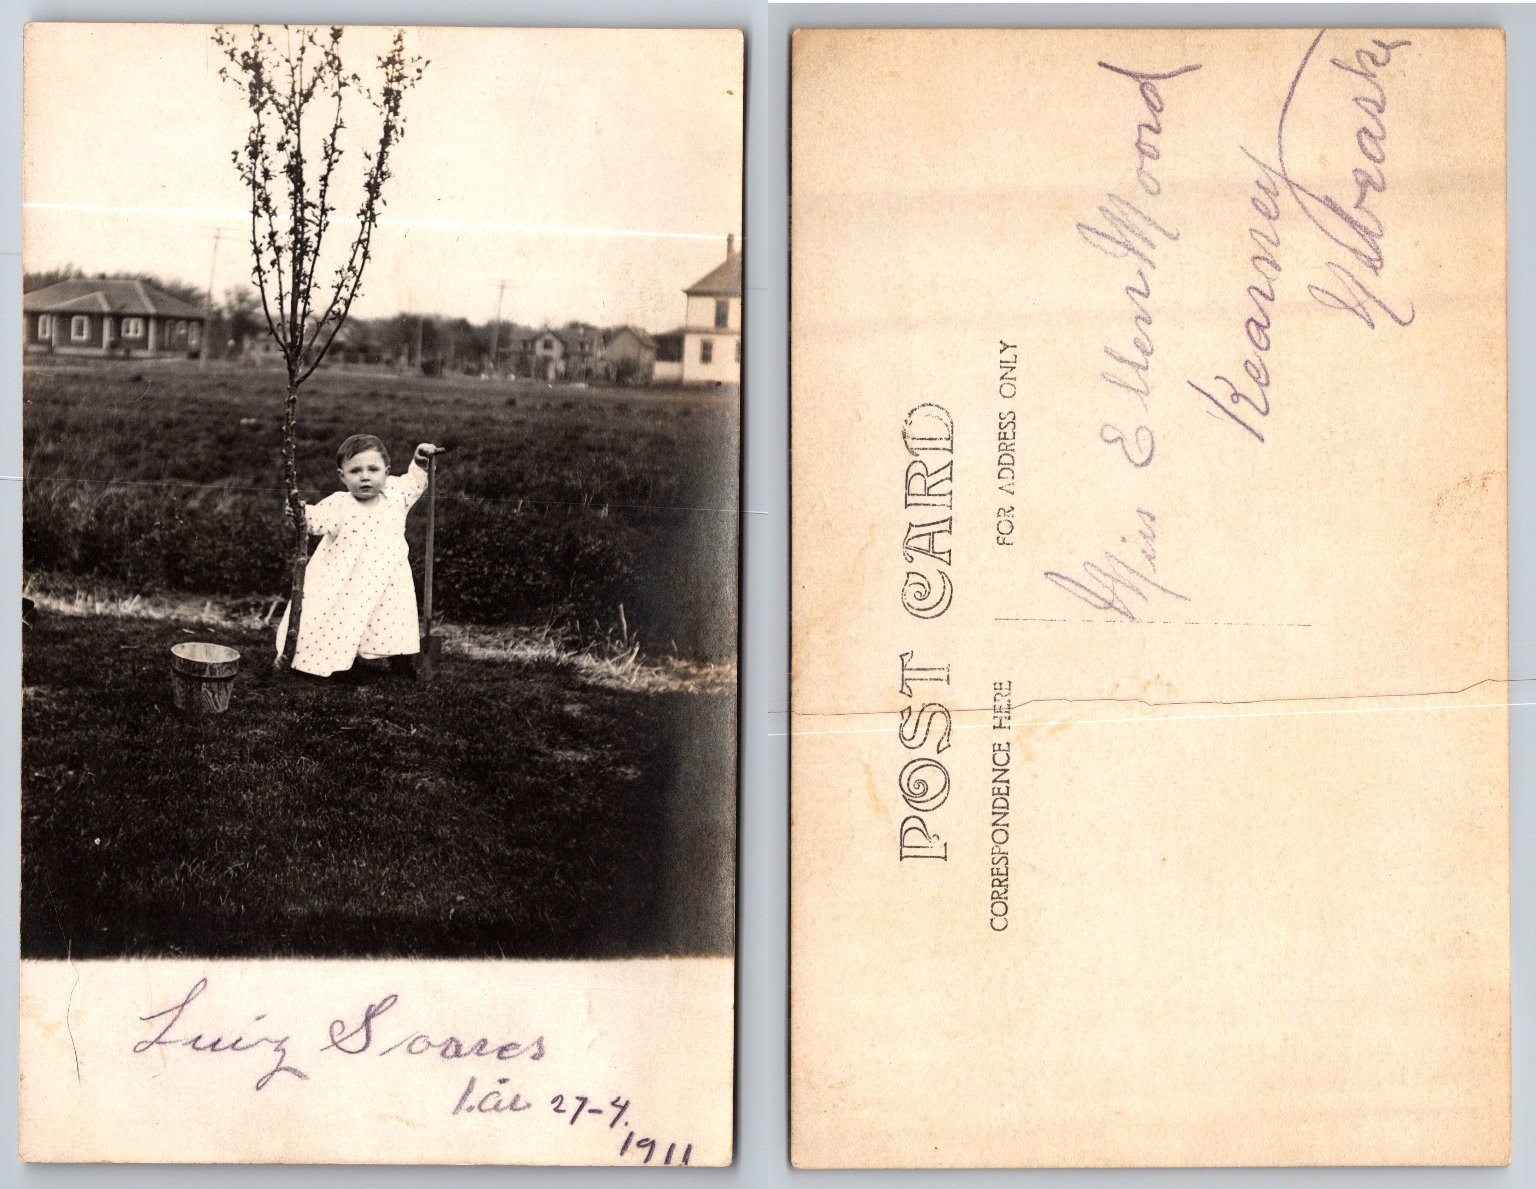 Luiz Soares
1. år 27-4.
1911
POST CARD
CORRESPONDENCE HERE
FOR ADDRESS ONLY
Miss Ellen Moord
Kearney
Nebraska